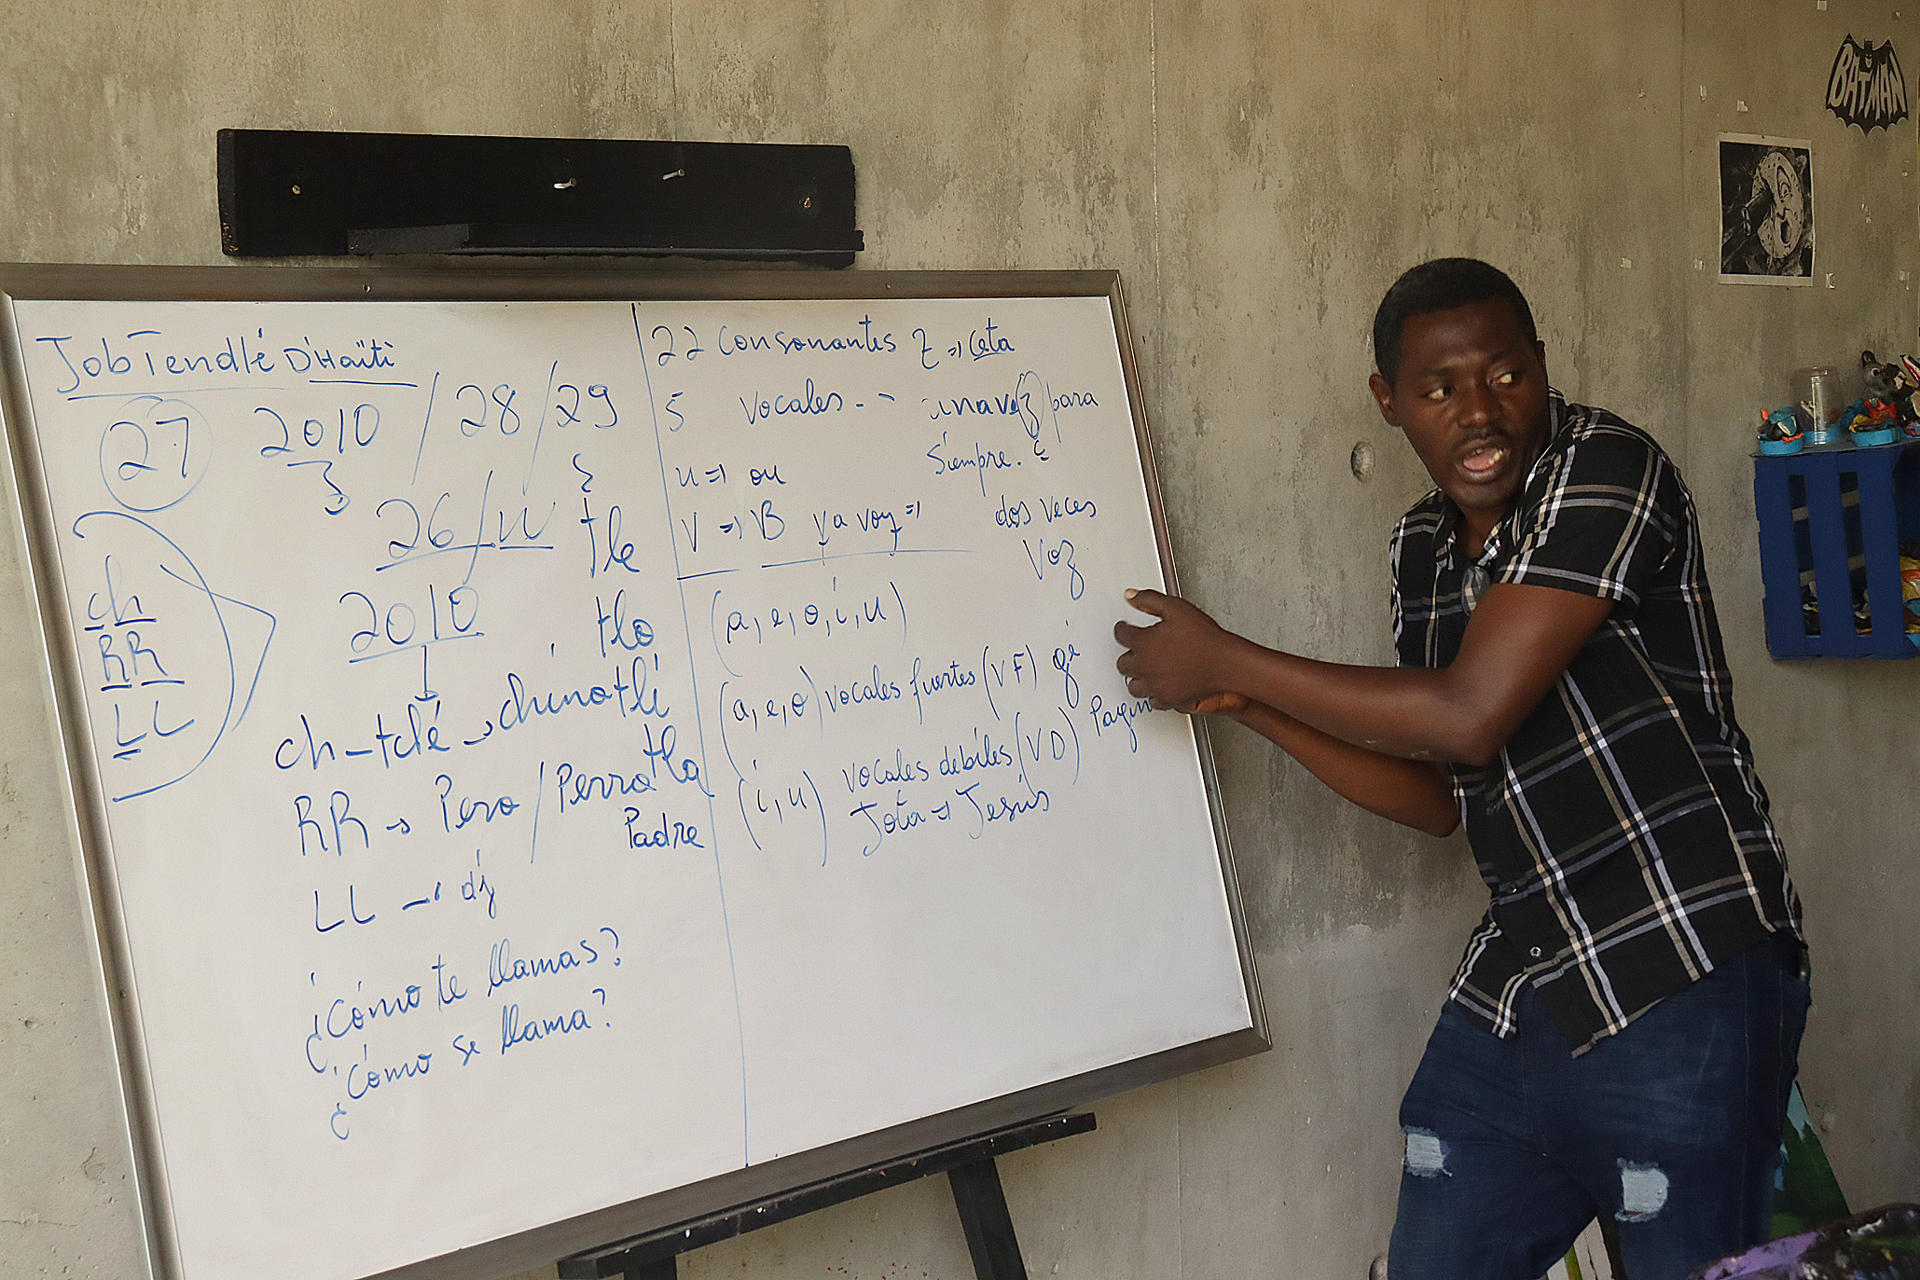 Job Tendlé D'Haïti
27 2010 / 28 / 29
26 / W
tle
2010
tlo
ch
RR
LL
ch - tché → chinotli
tla
RR → Pero / Perro
Padre
LL → dj
¿Cómo te llamas?
¿Cómo se llama?
22 Consonantes Z => Ceta
5 Vocales -- una vez para
siempre.
u => ou
V => B ya voy =>
dos veces
Voz
(a, e, o, i, u)
(a, e, o) vocales fuertes (VF) gi
(i, u) vocales debiles (VD)
Jota => Jesús
BATMAN